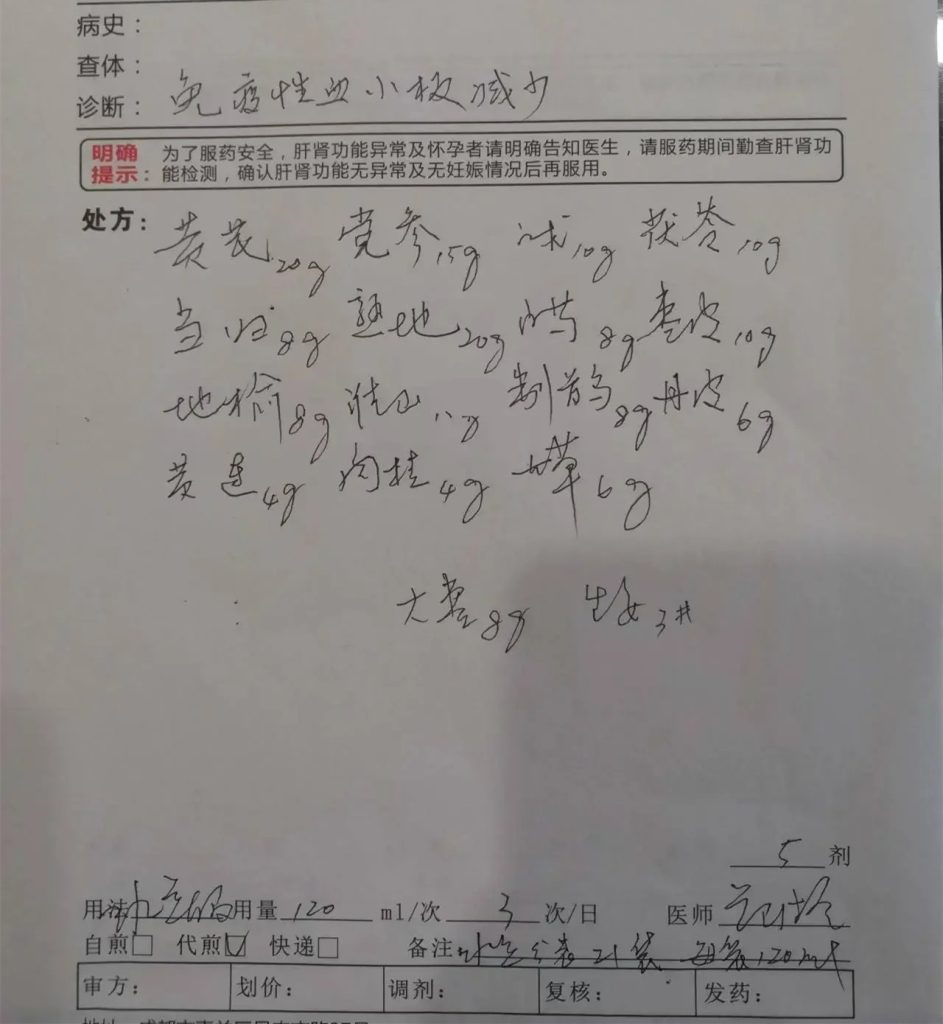 病史：
查体：
诊断： 免疫性血小板减少
明确提示： 为了服药安全，肝肾功能异常及怀孕者请明确告知医生，请服药期间勤查肝肾功
能检测，确认肝肾功能无异常及无妊娠情况后再服用。
处方： 黄芪20g 党参15g 10g 茯苓10g
当归8g 熟地20g 8g 枣皮10g
地榆8g 淮山 制首乌8g 丹皮6g
黄连4g 肉桂4g 草6g
大枣8g 生姜3片
5 剂
用法 用量 120 ml/次 3 次/日 医师
自煎□ 代煎☑ 快递□ 备注: 分装21袋 每袋120ml
审方： 划价： 调剂： 复核： 发药：